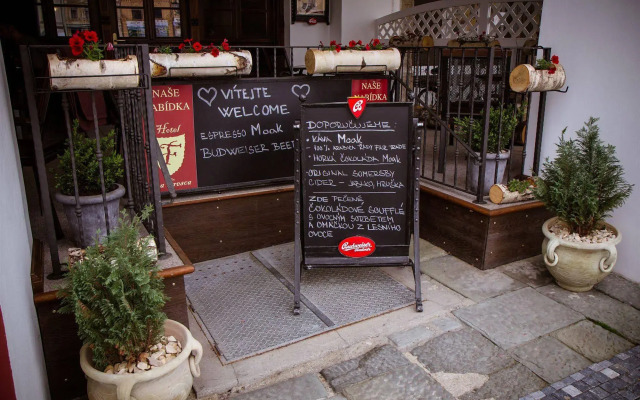 NAŠE
NABÍDKA
Hotel
VÍTEJTE
WELCOME
ESPRESSO Moak
BUDWEISER BEER
NAŠE
NABÍDKA
DOPORUČUJEME:
• KÁVA MOAK
100% ARABICA FAIR TRADE
- HORKÁ ČOKOLÁDA MOAK
ORIGINAL SOMERSBY
CIDER - JABLKO, HRUŠKA
ZDE PEČENÉ
ČOKOLÁDOVÉ SOUFFLÉ
S OVOCNÝM SORBETEM
A OMÁČKOU Z LESNÍHO
OVOCE
Budweiser